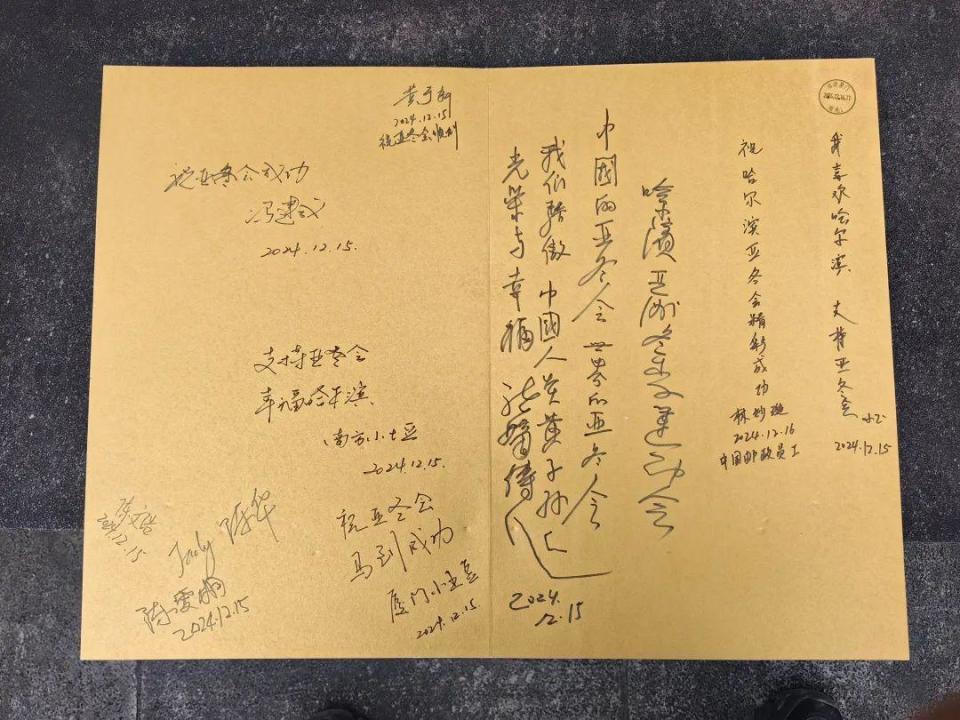 2024.12.15
祝亚冬会顺利
祝亚冬会成功
冯建
2024.12.15.
支持亚冬会
幸福哈尔滨
南方小土豆
2024.12.15.
祝亚冬会
马到成功
厦门小土豆
2024.12.15.
12.15
陈
陈爱
2024.12.15
我喜欢哈尔滨 支持亚冬会
2024.12.15
祝哈尔滨亚冬会精彩成功
林
2024.12.16
中国邮政员工
哈尔濱亚洲冬季运动会
中國的亚冬会 世界的亚冬会
我们骄傲 中國人炎黄子孙
光荣与幸福 传人
2024.
12.15